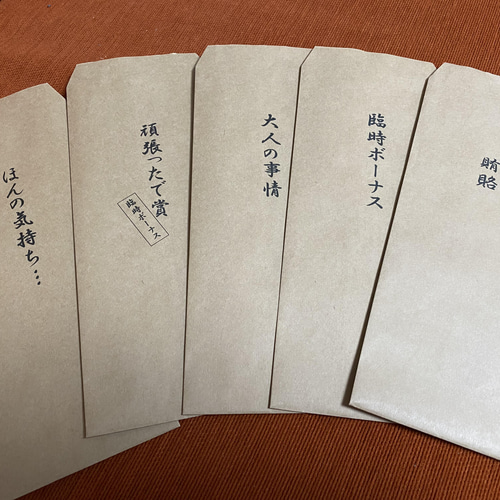 ほんの気持ち…
頑張ったで賞
臨時ボーナス
大人の事情
臨時ボーナス
賄賂